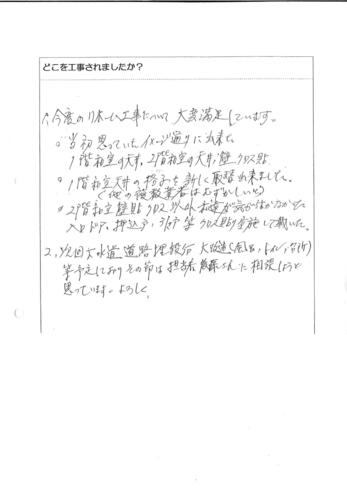 どこを工事されましたか?
1、今度のリホーム工事について大変満足しています。
○当初思っていたイメージ通りに出来た
1階和室の天井、2階和室の天井、壁クロス貼
○1階和室天井の格子を新しく取替出来ました。
(他の複数業者はむずかしいと)
○2階和室壁貼クロス以外
入口ドア、押込戸、クロス貼り実施して戴いた。
2、次回下水道道路埋設后 大改造(風呂、トイレ、台所)
等予定しておりその節は担当者 さんに相談しようと
思っています。よろしく